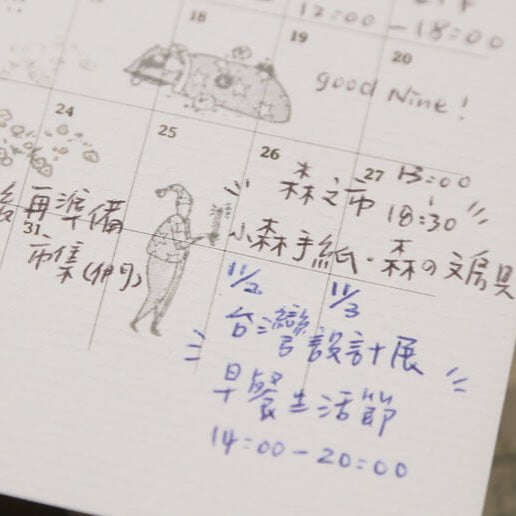 12:00 - 18:00
18
19
20
good Nine!
24
25
26
27
森之市
13:00
18:30
再準備
31
市集(伊日)
小森手紙・森の文房具
11/2
11/3
台灣設計展
早餐生活節
14:00 - 20:00